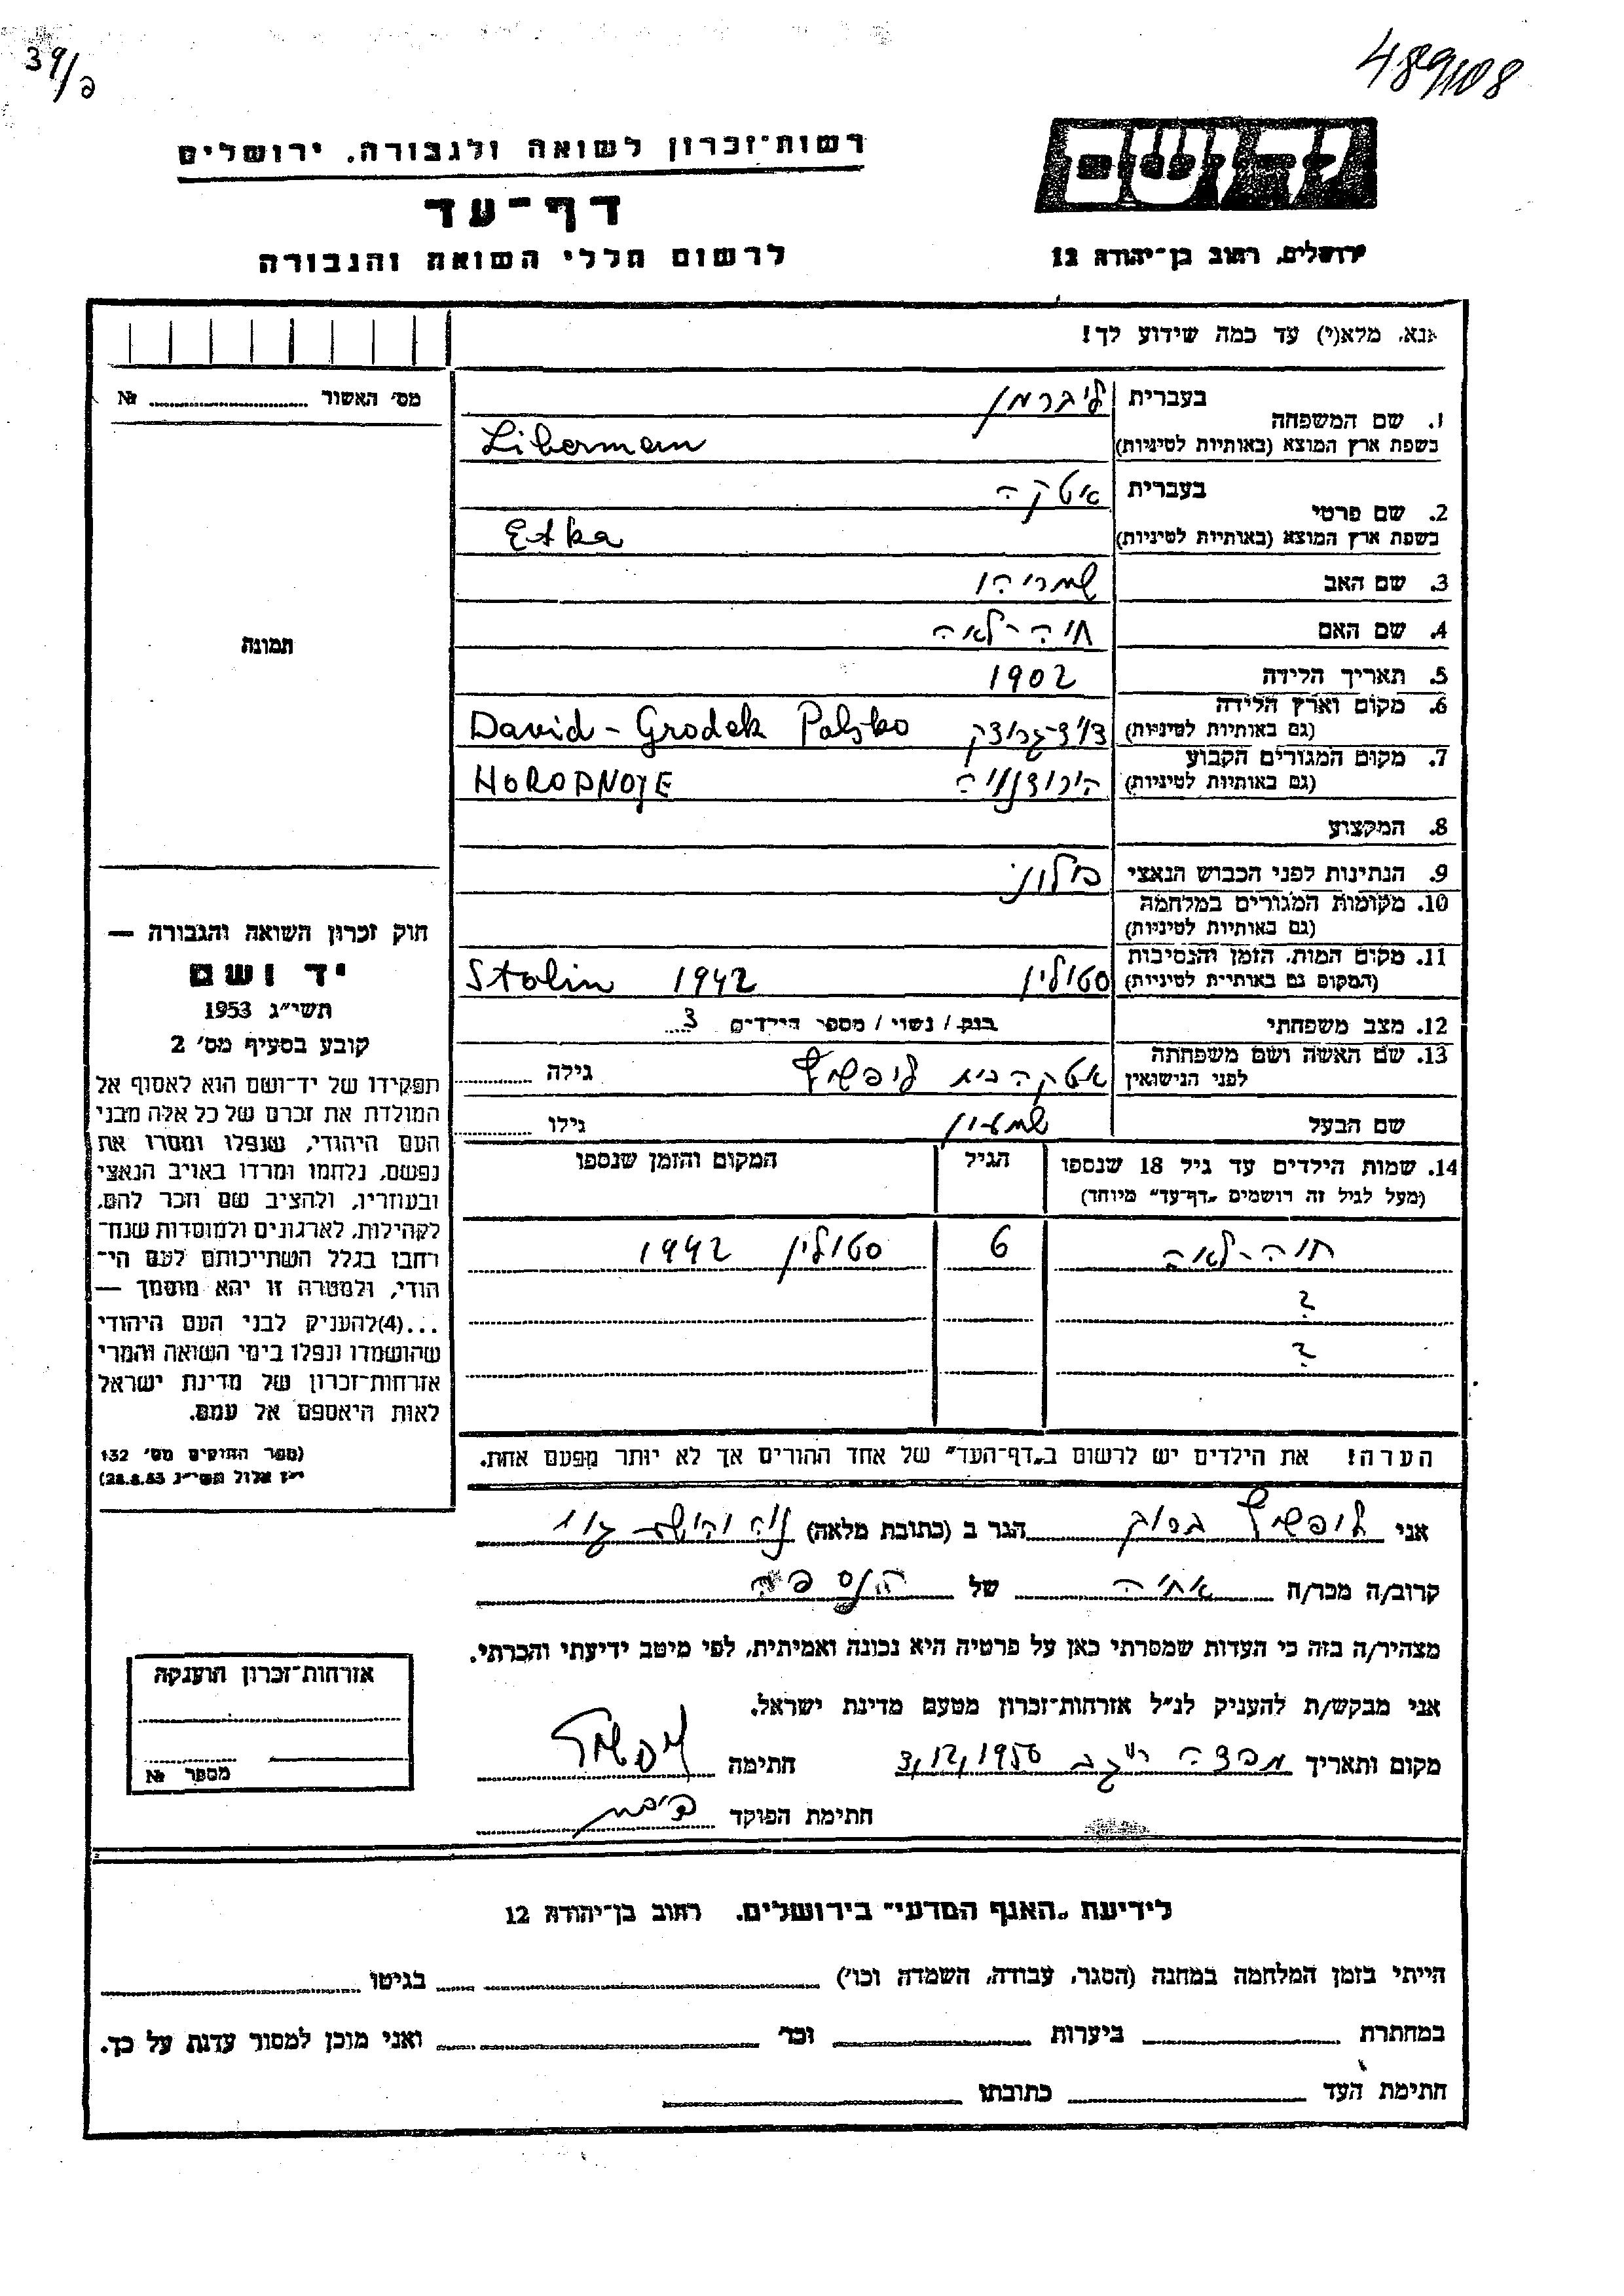 39/ס
489108
רשות־זכרון לשואה ולגבורה, ירושלים
דף־עד
לרשום חללי השואה והגבורה
יד ושם
ירושלים, רחוב בן־יהודה 12
אנא, מלא(י) עד כמה שידוע לך!
מס׳ האשור № 
1. שם המשפחה בעברית ליברמן
בשפת ארץ המוצא (באותיות לטיניות) Liberman
2. שם פרטי בעברית אטקה
בשפת ארץ המוצא (באותיות לטיניות) Etka
3. שם האב שמריהו
4. שם האם חיה-לאה
תמונה
5. תאריך הלידה 1902
6. מקום וארץ הלידה
(גם באותיות לטיניות) דויד-גרודק David-Grodek Polsko
7. מקום המגורים הקבוע
(גם באותיות לטיניות) הורודנויה HORODNOJE
8. המקצוע
9. הנתינות לפני הכבוש הנאצי פולוני
10. מקומות המגורים במלחמה
(גם באותיות לטיניות)
11. מקום המות, הזמן והנסיבות
(המקום גם באותיות לטיניות) סטולין 1942 Stolin
12. מצב משפחתי רווק / נשוי / מספר הילדים 3
13. שם האשה ושם משפחתה
לפני הנישואין אטקה בית ליפשיץ גילה
שם הבעל שמעון גילו
14. שמות הילדים עד גיל 18 שנספו הגיל המקום והזמן שנספו
(מעל לגיל זה רושמים „דף־עד” מיוחד)
חיה-לאה 6 סטולין 1942
?
?
הערה! את הילדים יש לרשום ב„דף־העד” של אחד ההורים אך לא יותר מפעם אחת.
חוק זכרון השואה והגבורה —
יד ושם
תשי״ג 1953
קובע בסעיף מס׳ 2
תפקידו של יד־ושם הוא לאסוף אל
המולדת את זכרם של כל אלה מבני
העם היהודי, שנפלו ומסרו את
נפשם, נלחמו ומרדו באויב הנאצי
ובעוזריו, ולהציב שם וזכר להם,
לקהילות, לארגונים ולמוסדות שנח־
רבו בגלל השתייכותם לעם הי־
הודי, ולמטרה זו יהא מוסמך —
...(4) להעניק לבני העם היהודי
שהושמדו ונפלו בימי השואה והמרי
אזרחות־זכרון של מדינת ישראל
לאות היאספם אל עמם.
(ספר החוקים מס׳ 132
י״ז אלול תשי״ג 28.8.53)
אני ליפשיץ ברוך הגר ב (כתובת מלאה)
קרוב/ה מכר/ה אחיה של הנספה
מצהיר/ה בזה כי העדות שמסרתי כאן על פרטיה היא נכונה ואמיתית, לפי מיטב ידיעתי והכרתי.
אני מבקש/ת להעניק לנ״ל אזרחות־זכרון מטעם מדינת ישראל.
מקום ותאריך 3,12,1956 חתימה
חתימת הפוקד
אזרחות־זכרון הוענקה
מספר №
לידיעת „האגף המדעי” בירושלים, רחוב בן־יהודה 12
הייתי בזמן המלחמה במחנה (הסגר, עבודה, השמדה וכו׳) בגיטו
במחתרת ביערות וכו׳ ואני מוכן למסור עדות על כך.
חתימת העד כתובתו